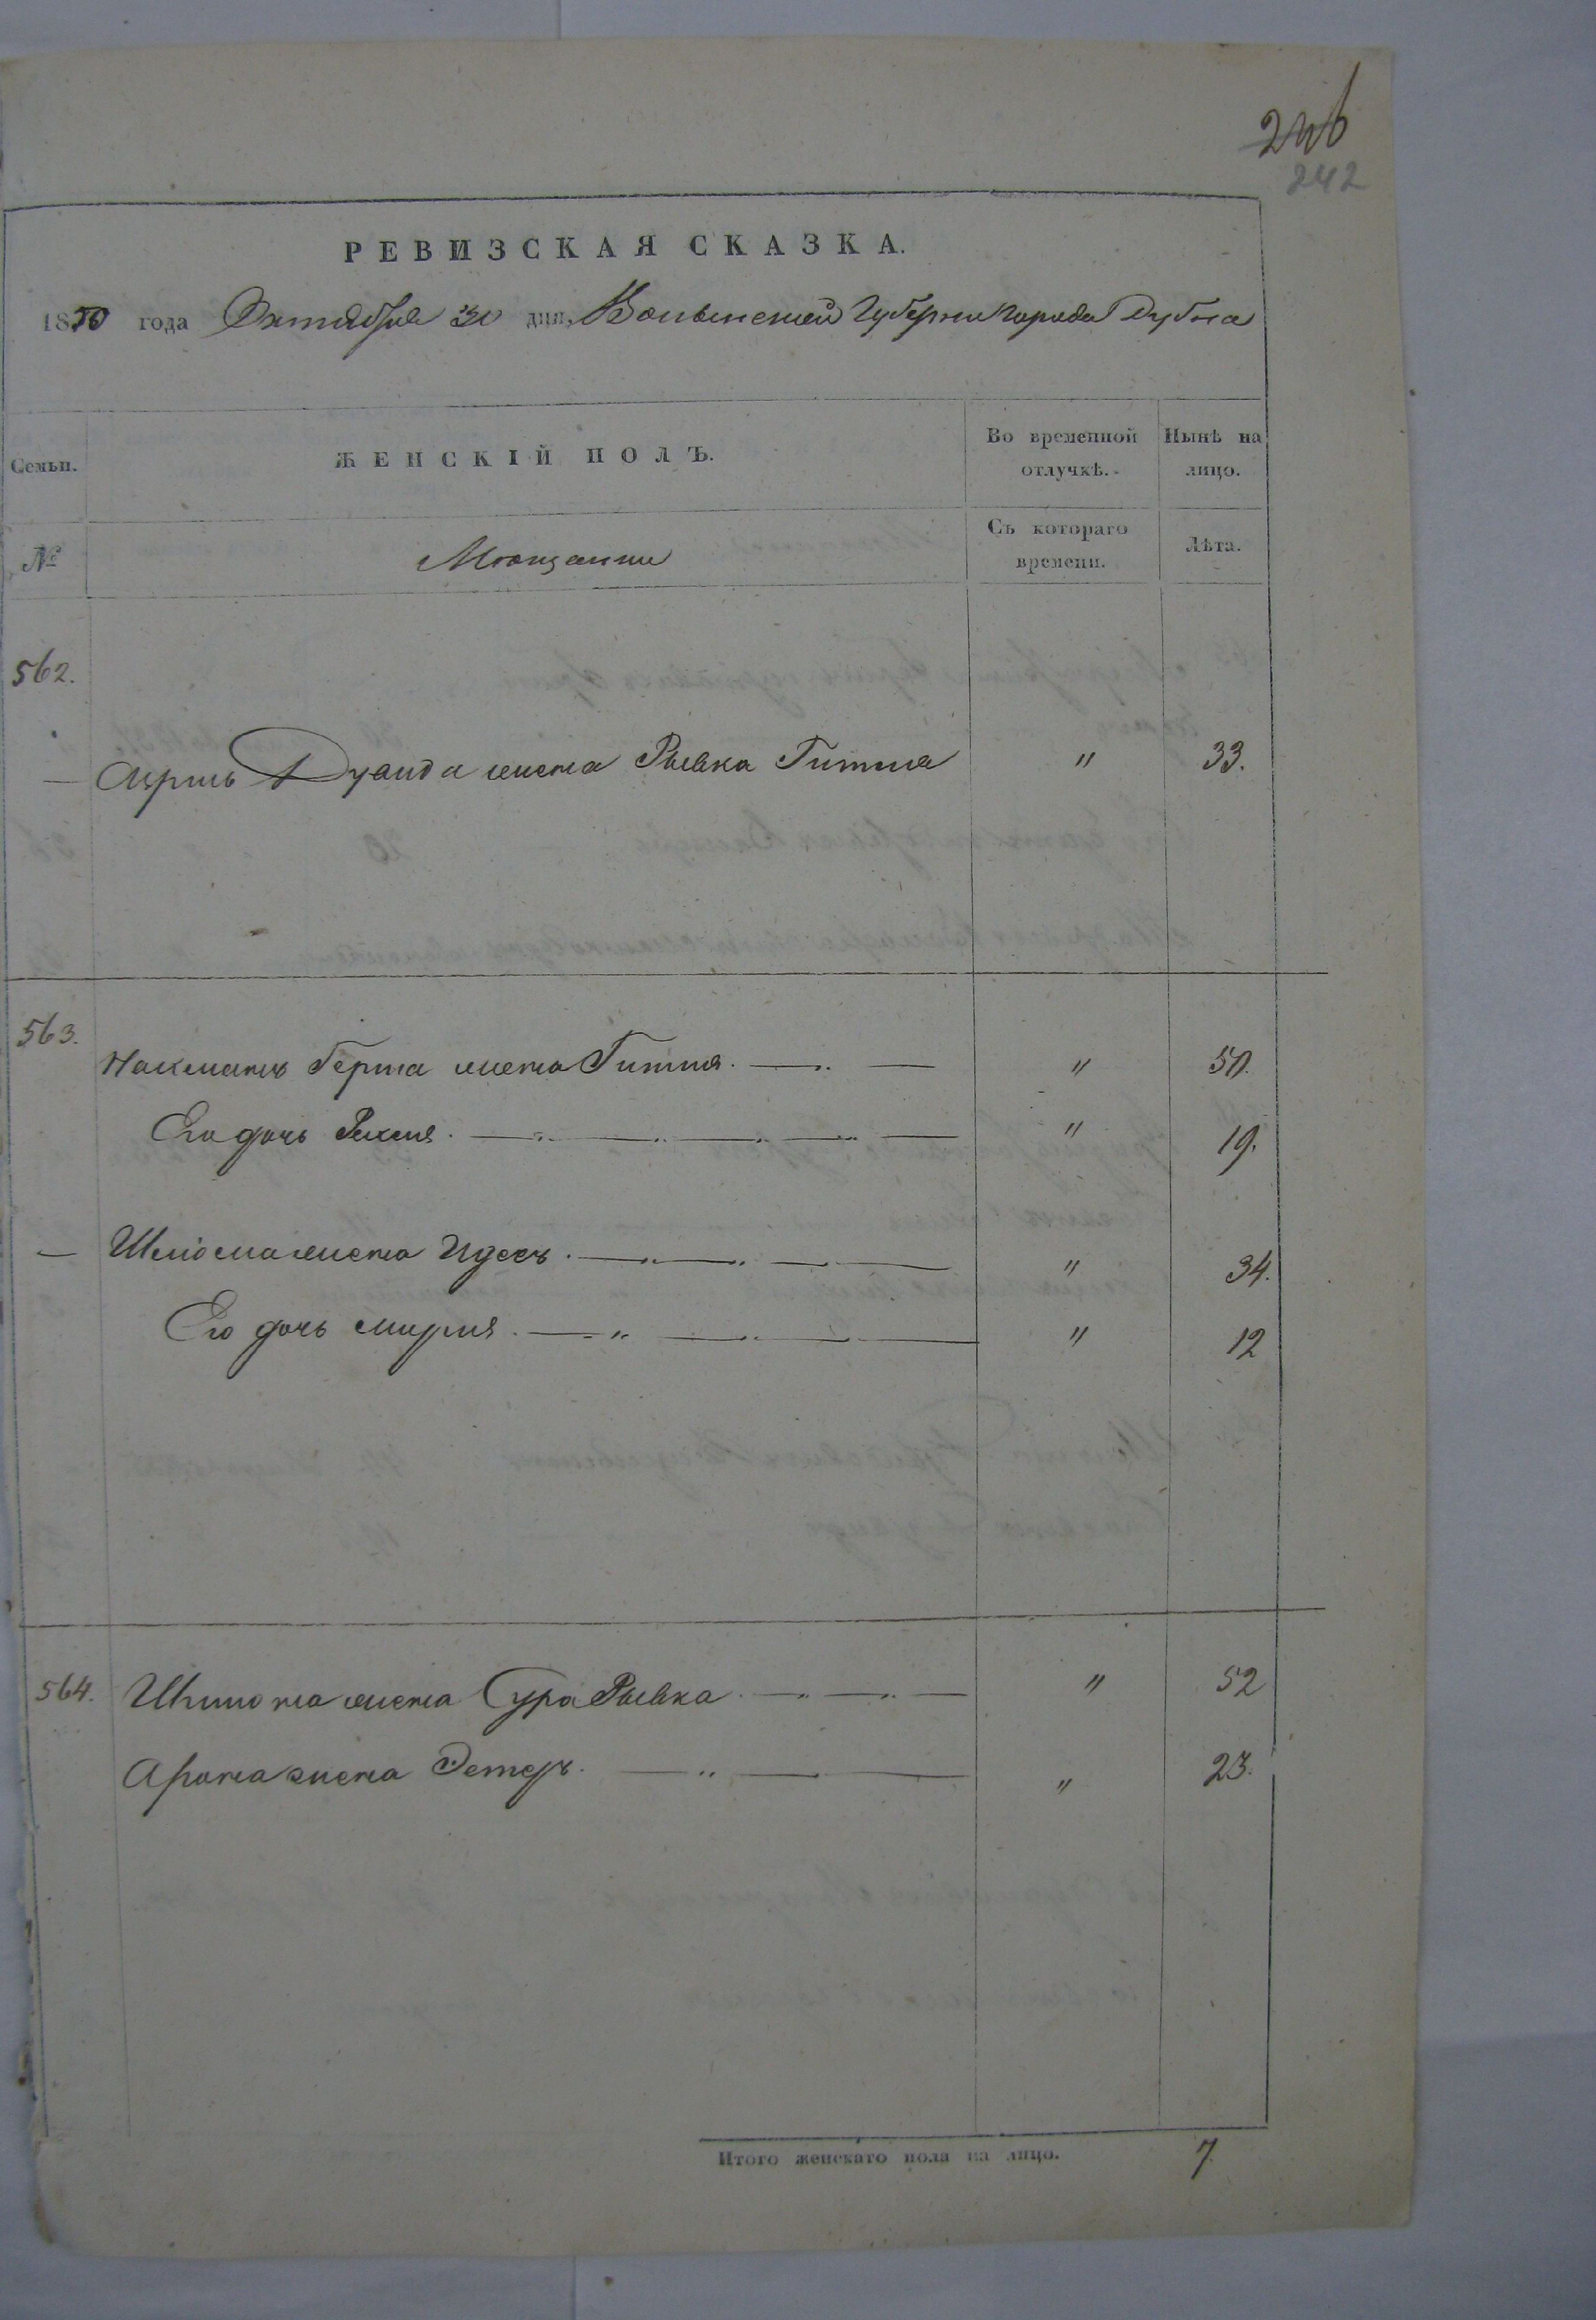 246
242
РЕВИЗСКАЯ СКАЗКА.
1850 года Октября 30 дня, Волынской Губернии города Дубна
Семьи. ЖЕНСКІЙ ПОЛЪ. Во временной отлучкѣ. Нынѣ на лицо.
№ Мѣщанъ Съ котораго времени. Лѣта.
562.
жена Рывка Гитля " 33.
563.
жена Гитля. " 50.
Его дочь " 19.
Шлиома жена Идесъ. " 34.
Его дочь Мирля. " 12
564. жена Сура Рывка " 52
Арона жена Этеръ. " 23.
Итого женскаго пола на лицо. 7